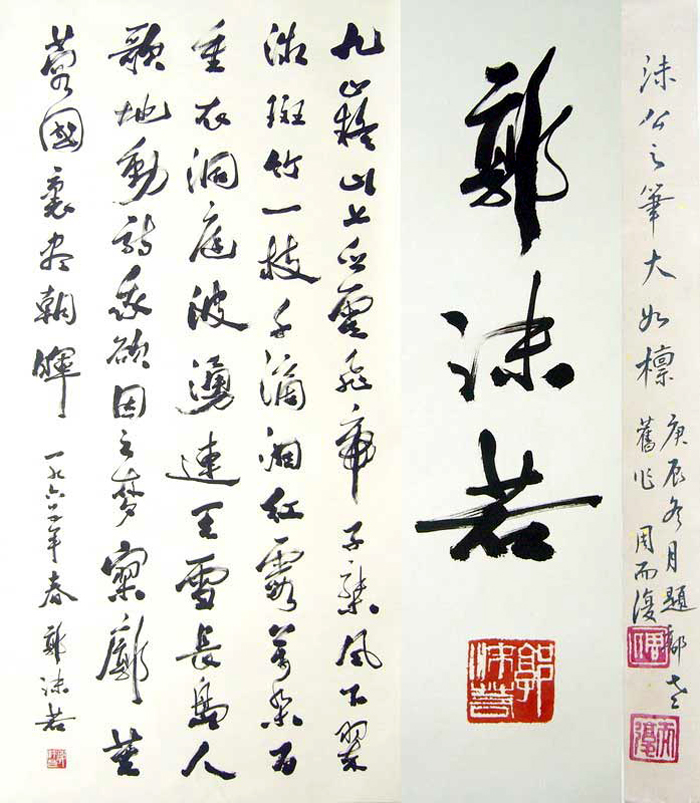 沫公之筆大如檩
庚辰冬月題郭老
舊作 周而復
郭沫若
郭沫若
九嶷山上白雲飛帝子乘風下翠
微斑竹一枝千滴淚紅霞萬朵百
重衣洞庭波湧連天雪長島人
歌地動詩我欲因之夢寥廓芙
蓉國裏盡朝暉 一九六二年春 郭沫若